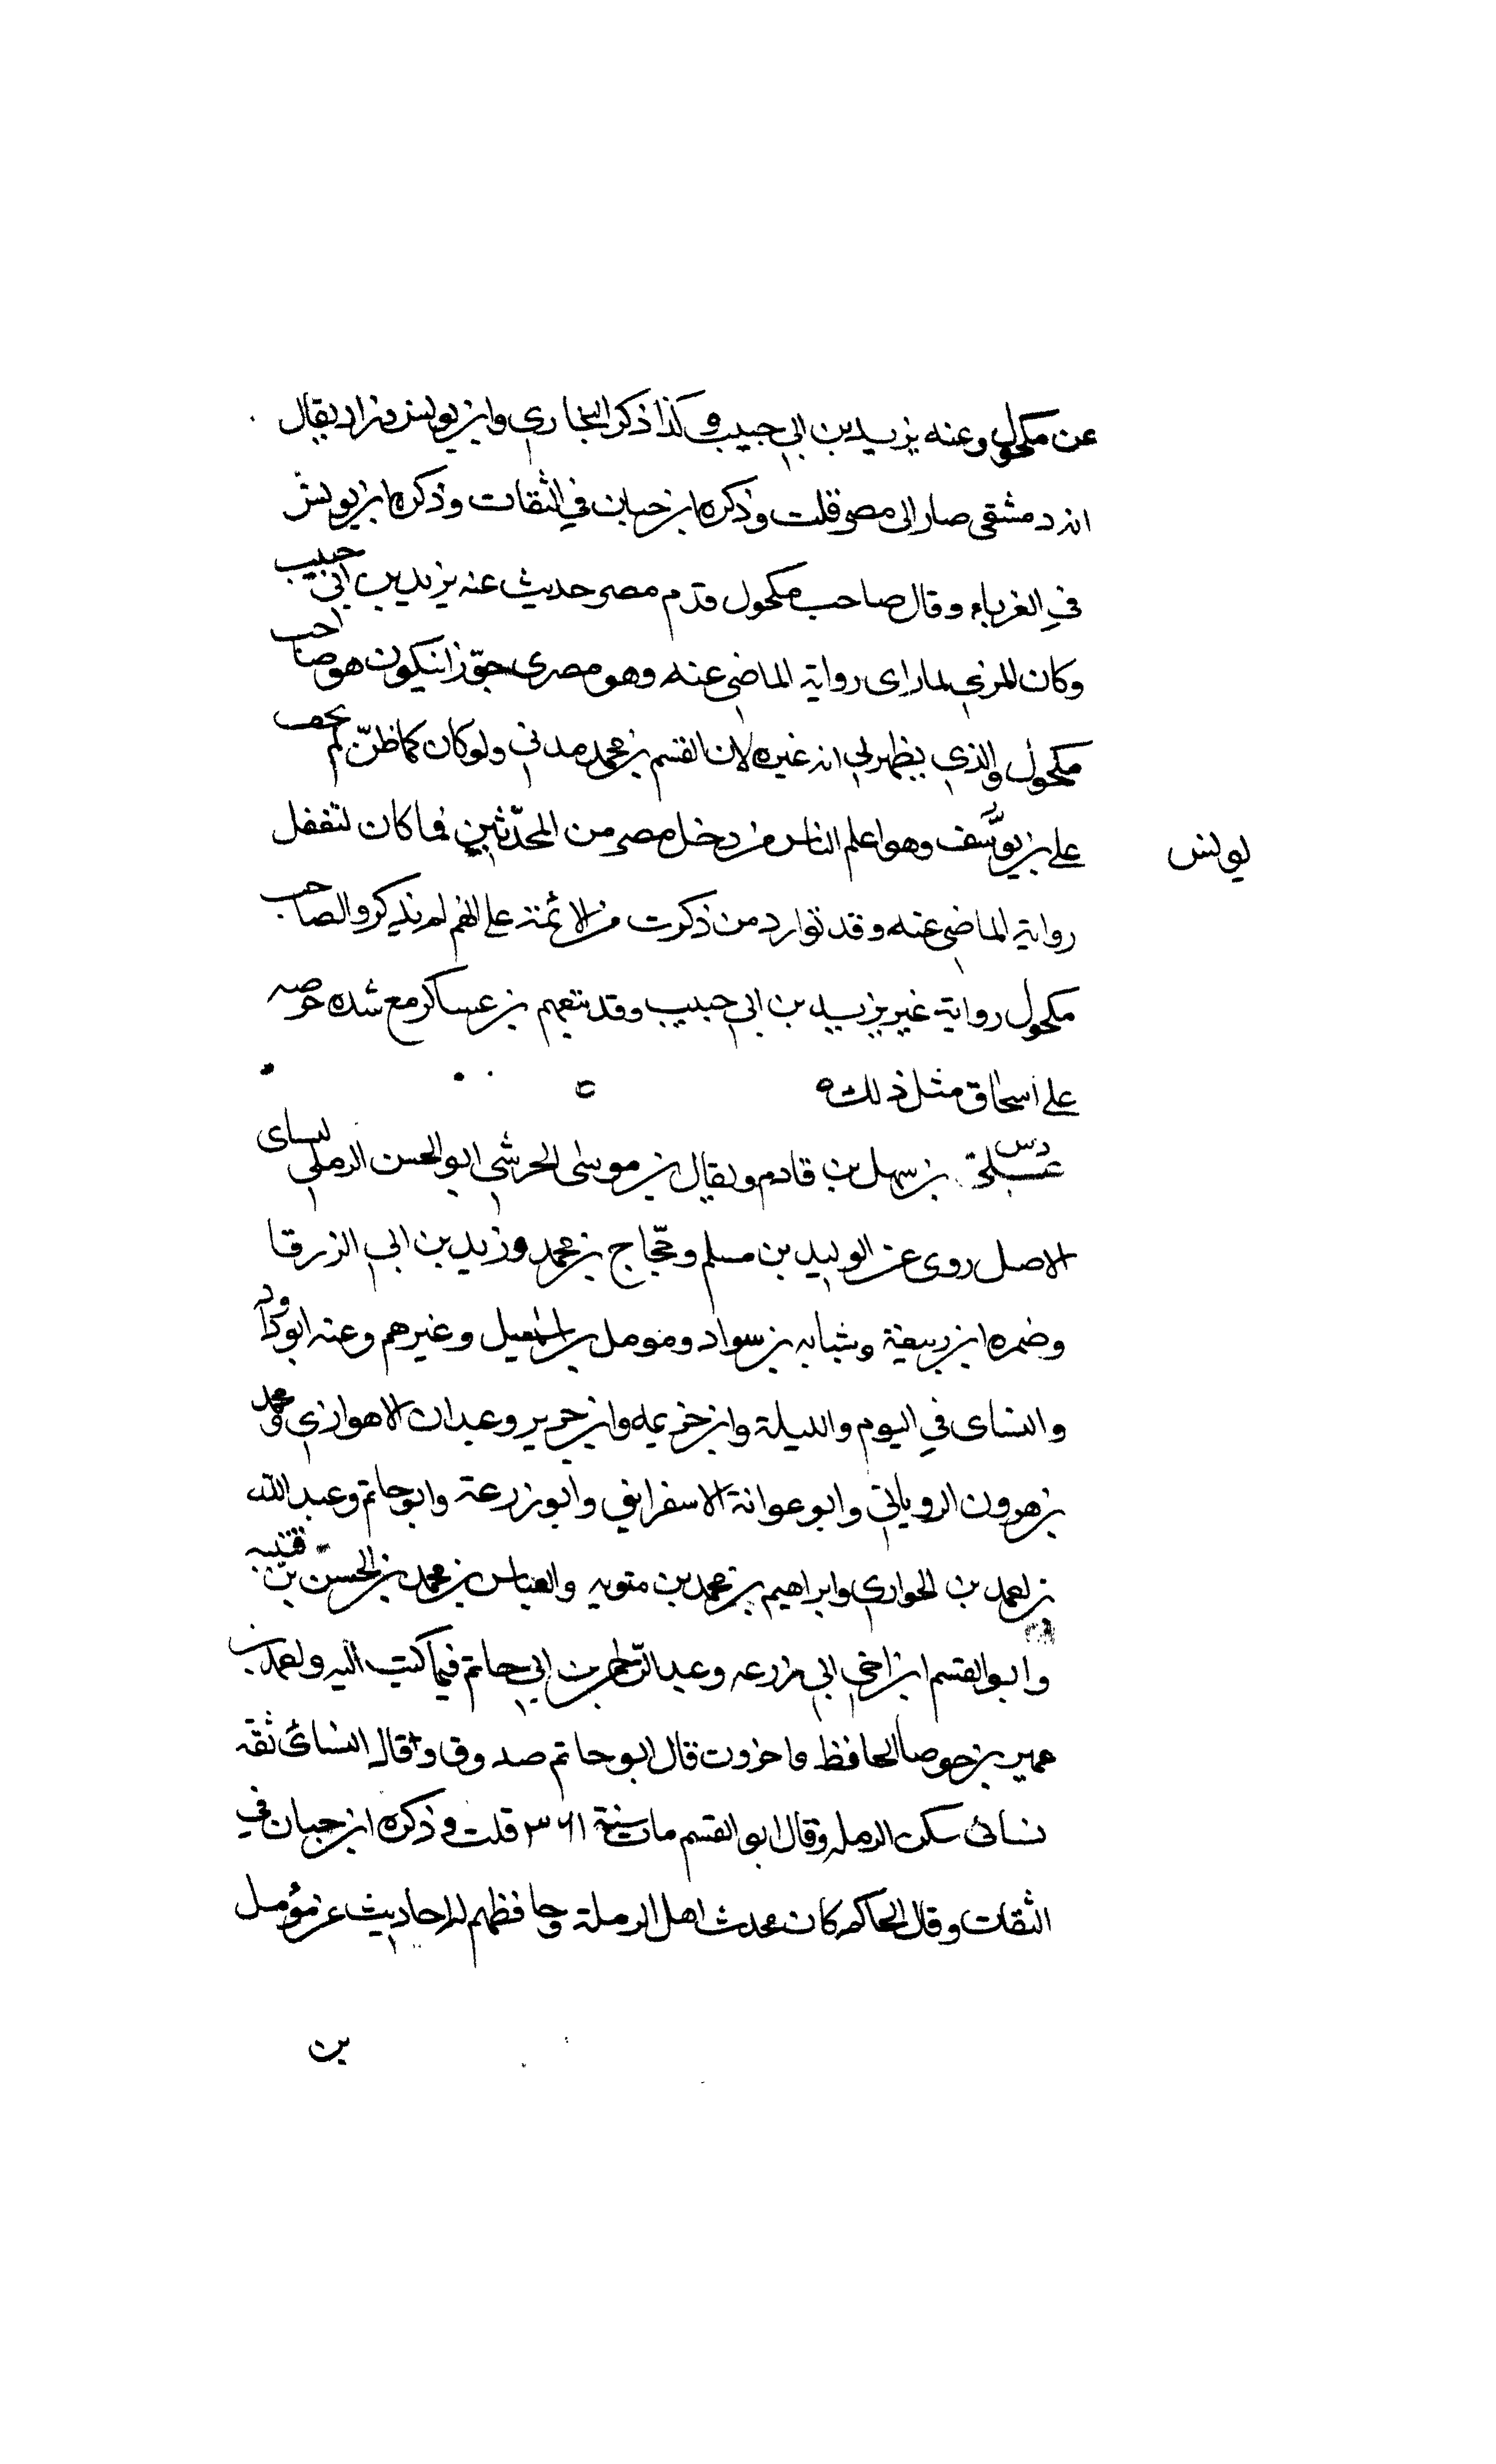 عن مكحول وعنه يزيد بن ابي حبيب وكذا ذكر البخاري وابن يونس وزاد يقال
انه دمشقي صار الى مصر قلت وذكره ابن حبان في الثقات وذكره ابن يونس
في الغرباء وقال صاحب مكحول قدم مصر حديث عنه يزيد بن ابي حبيب
وكان المزي لما راى رواية الماضي عنه وهو مصري جوّز انيكون هو صاحب
مكحول والذي يظهر لي انه غيره لان القسم بن محمد مدني ولو كان كما ظنّ لم يخف
على بن يوسف وهو اعلم الناس من دخل مصر من المحدّثين فما كان لتغفل
يونس
رواية الماضي عنه وقد توارد من ذكرت من الائمة على انهم لم يذكروا لصاحب
مكحول رواية غير يزيد بن ابي حبيب وقد تبعهم بن عساكر مع شده حرصه
على اسحاق مثل ذلك ه
دس
علي بن سهل بن قادم ويقال بن موسى الحرشي ابو الحسن الرملي نساى
الاصل روى عن الوليد بن مسلم وحجّاج بن محمد وزيد بن ابي الزرقا
وضمره ابن ربيعة وشبابه بن سواد ومومل بن اسمعيل وغيرهم وعنه ابو داود
والنساى في اليوم والليلة وابن خزيمه وابن جرير وعبدان الاهوازي ومحمد
بن هرون الروياني وابو عوانة الاسفرايني وابو زرعة وابو حاتم وعبد الله
بن احمد بن الحواري وابراهيم بن محمد بن متويه والعباس بن محمد بن الحسن بن قتيبه
وابو القسم ابن اخي ابي زرعه وعبد الرّحمن بن ابي حاتم فيما كتب اليه واحمد بن
عمير بن جوصا الحافظ واخرون قال ابو حاتم صدوق وقال النسائ ثقه
نسائ سكن الرمله وقال ابو القسم مات سنة ٣٦١ قلت وذكره ابن حبان في
الثقات وقال الحاكم كان محدث اهل الرملة وحافظهم له احاديث عن مؤمل
بن